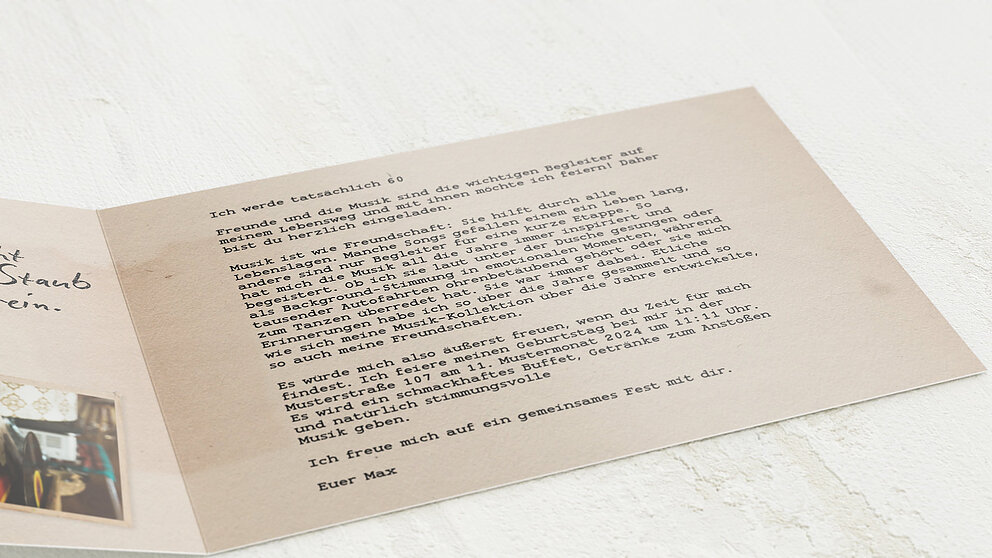 Ich werde tatsächlich 60
Freunde und die Musik sind die wichtigen Begleiter auf
meinem Lebensweg und mit ihnen möchte ich feiern! Daher
bist du herzlich eingeladen.
Musik ist wie Freundschaft: Sie hilft durch alle
Lebenslagen. Manche Songs gefallen einem ein Leben lang,
andere sind nur Begleiter für eine kurze Etappe. So
hat mich die Musik all die Jahre immer inspiriert und
begeistert. Ob ich sie laut unter der Dusche gesungen oder
als Background-Stimmung in emotionalen Momenten, während
tausender Autofahrten ohrenbetäubend gehört oder sie mich
zum Tanzen überredet hat. Sie war immer dabei. Etliche
Erinnerungen habe ich so über die Jahre gesammelt und so
wie sich meine Musik-Kollektion über die Jahre entwickelte,
so auch meine Freundschaften.
Es würde mich also äußerst freuen, wenn du Zeit für mich
findest. Ich feiere meinen Geburtstag bei mir in der
Musterstraße 107 am 11. Mustermonat 2024 um 11:11 Uhr.
Es wird ein schmackhaftes Buffet, Getränke zum Anstoßen
und natürlich stimmungsvolle
Musik geben.
Ich freue mich auf ein gemeinsames Fest mit dir.
Euer Max
Staub
ein.